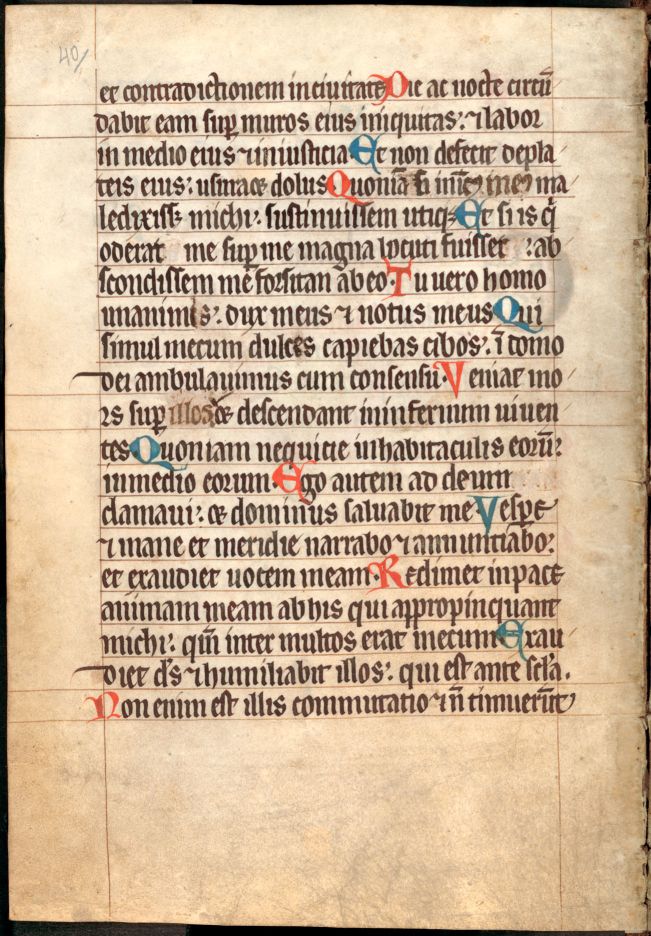 40/
et contradictionem in ciuitate Die ac nocte circū
dabit eam sup muros eius iniquitas: ⁊ labor
in medio eius ⁊ iniusticia. Et non defecit de pla
teis eius: usura et dolus Quoniā si inim meꝰ ma
ledixiss; michi: sustinuissem utiq; Et si is q̄
oderat me sup me magna locuti fuisset : ab
scondissem me forsitan ab eo. Tu uero homo
unanimis: dux meus ⁊ notus meus Qui
simul mecum dulces capiebas cibos: ī domo
dei ambulauimus cum consensu. Veniat mo
rs sup illos et descendant in infernum uiuen
tes. Quoniam nequicie in habitaculis eorū:
in medio eorum. Ego autem ad deum
clamaui: et dominus saluabit me. Vespe
⁊ mane et meridie narrabo ⁊ annunciabo:
et exaudiet uocem meam. Redimet in pace
animam meam ab his qui appropinquant
michi: qm̄ inter multos erat mecum Exau
diet ds̄ ⁊ humiliabit illos: qui est ante scl̄a.
Non enim est illis commutatio ⁊ n̄ timuerūt